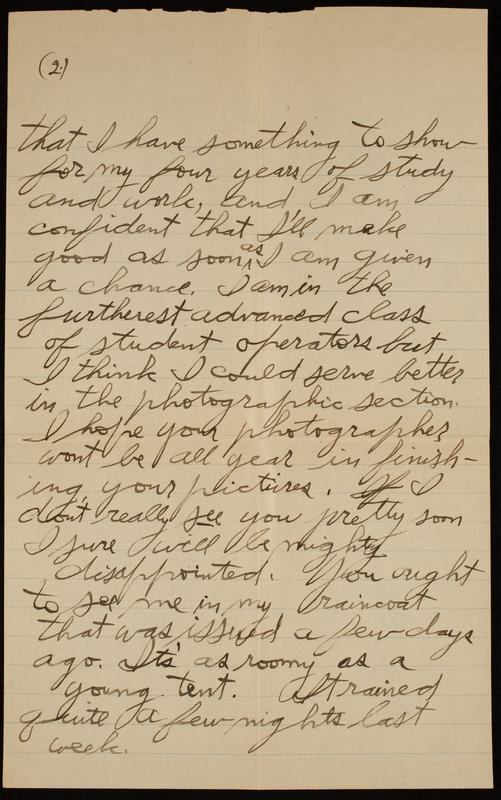 (2.)
that I have something to show
for my four years of study
and work, and, I am
confident that I'll make
good as soon as I am given
a chance. I am in the
furtherest advanced class
of student operators but
I think I could serve better
in the photographic section.
I hope your photographer
wont be all year in finish-
ing your pictures. If I
don't really see you pretty soon
I sure will be mighty
disappointed. You ought
to see me in my raincoat
that was issued a few days
ago. It's as roomy as a
young tent. It rained
quite a few nights last
week.